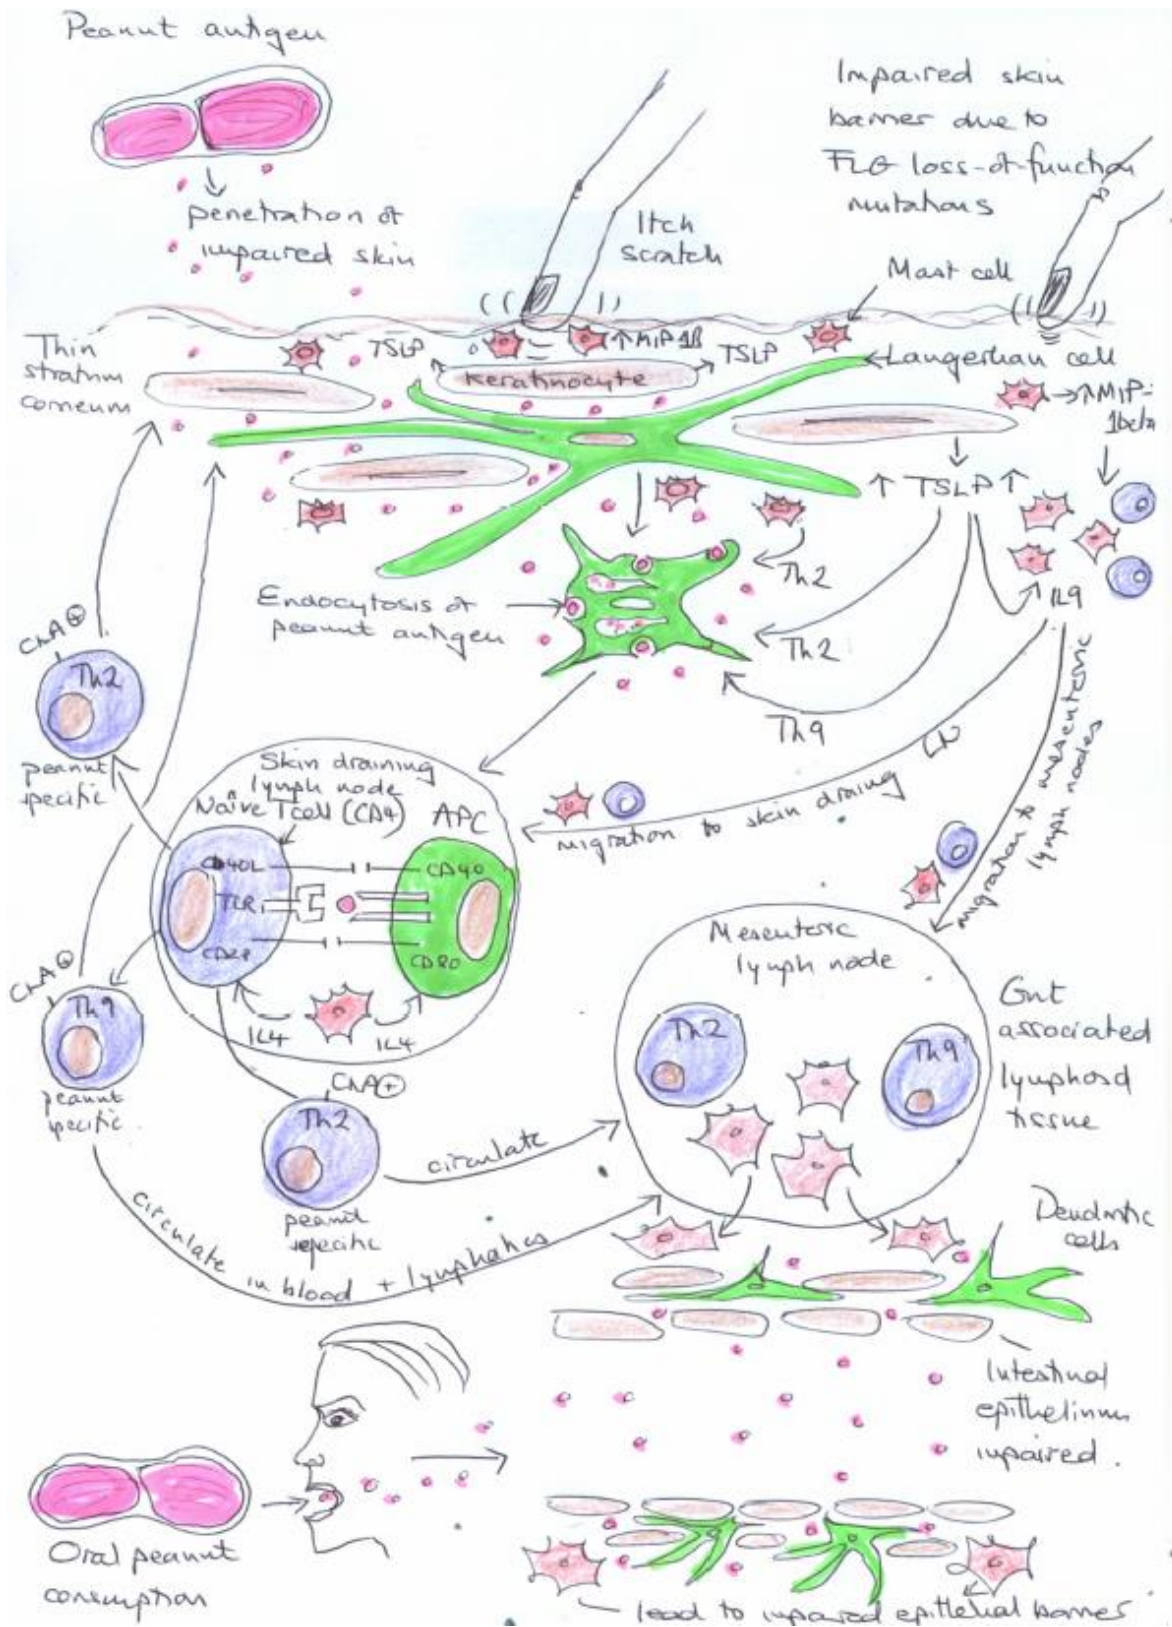 Peanut antigen
penetration of
impaired skin
Itch
scratch
Impaired skin
barrier due to
FLG loss-of-function
mutations
Mast cell
Thin
stratum
corneum
TSLP
↑MIP1β
TSLP
Keratinocyte
Langerhan cell
↑MIP-
1beta
↑ TSLP ↑
Th2
IL9
Endocytosis of
peanut antigen
Th2
Th9
CLA⊕
Th2
peanut
specific
Skin draining
lymph node
Naive T cell (CD4)
APC
CD40L
CD40
TCR
CD28
CD80
IL4
IL4
migration to skin draining LN
migration to mesenteric
lymph nodes
CLA⊕
Th9
peanut
specific
CLA⊕
Th2
peanut
specific
circulate
circulate in blood + lymphatics
Mesenteric
lymph node
Th2
Th9
Gut
associated
lymphoid
tissue
Dendritic
cells
Intestinal
epithelium
impaired.
Oral peanut
consumption
lead to impaired epithelial barrier